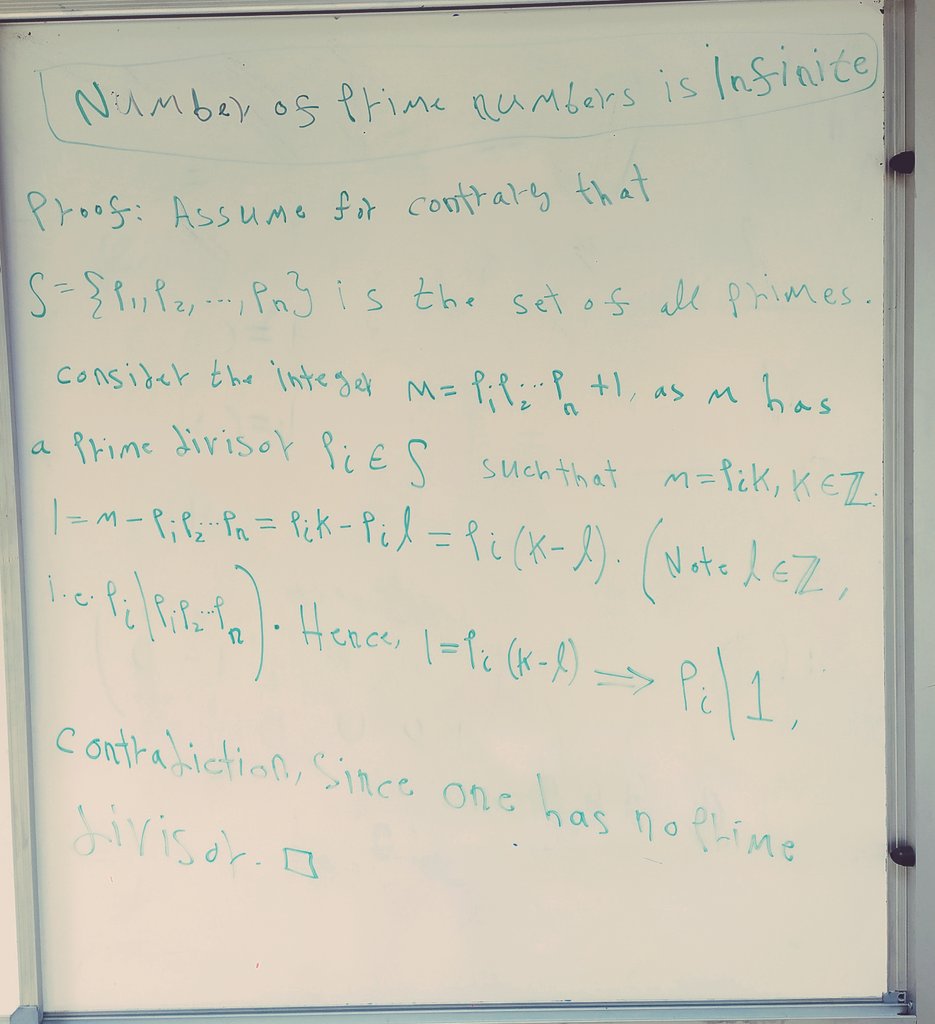 Number of Prime numbers is Infinite
Proof: Assume for contrary that
S={P₁,P₂,...,Pₙ} is the set of all primes.
consider the integer m=P₁P₂...Pₙ+1, as m has
a Prime divisor Pᵢ∈S such that m=Pᵢk, k∈ℤ.
1=m-P₁P₂...Pₙ=Pᵢk-Pᵢl=Pᵢ(k-l). (Note l∈ℤ,
i.e. Pᵢ|P₁P₂...Pₙ). Hence, 1=Pᵢ(k-l) ⟹ Pᵢ|1,
Contradiction, Since one has no Prime
divisor. □